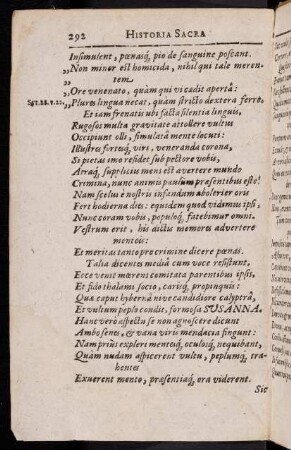 292 HISTORIA SACRA
Insimulent, pœnasq́, pio de sanguine poscant.
„Non minor est homicida, nihil qui tale meren-
tem
„Ore venenato, quàm qui vi cædit apertâ:
Syr.28.v.22. „Plures lingua necat, quàm stricto dextera ferro.
Et iam frenatis ubi facta silentia linguis,
Rugosos multa gravitate attollere vultus
Occipiunt olli, simulatâ mente locuti:
Illustres fortesq́, viri, veneranda corona,
Si pietas imo residet sub pectore vobis,
Atraq́, supplicij meni est avertere mundo
Crimina, nunc animis paulùm præsentibus este!
Nam scelus è nostris infandum abolerier oris
Fert hodierna dies: equidem quod vidimus ipsi,
Nunc coram vobis, populoq́, fatebimur omni.
Vestrum erit, his dictis memores advertere
mentes:
Et meritas tanto pro crimine dicere pœnas.
Talia dicentes mediâ cum voce resistunt,
Ecce venit mærens comitata parentibus ipsis,
Et fido thalami socio, carisq́, propinquis:
Quæ caput hybernâ nive candidiore calyptrâ,
Et vultum peplo condit, formosa SUSANNA.
Hanc verò aspectu se non agnoscere dicunt
Ambo senes, & vana viri mendacia fingunt:
Nam priùs expleri mentesq́, oculosq́, nequibant,
Quàm nudam aspicerent vultu, peplumq́, tra-
hentes
Exuerent mento, præsentiaq́, ora viderent.
Sic